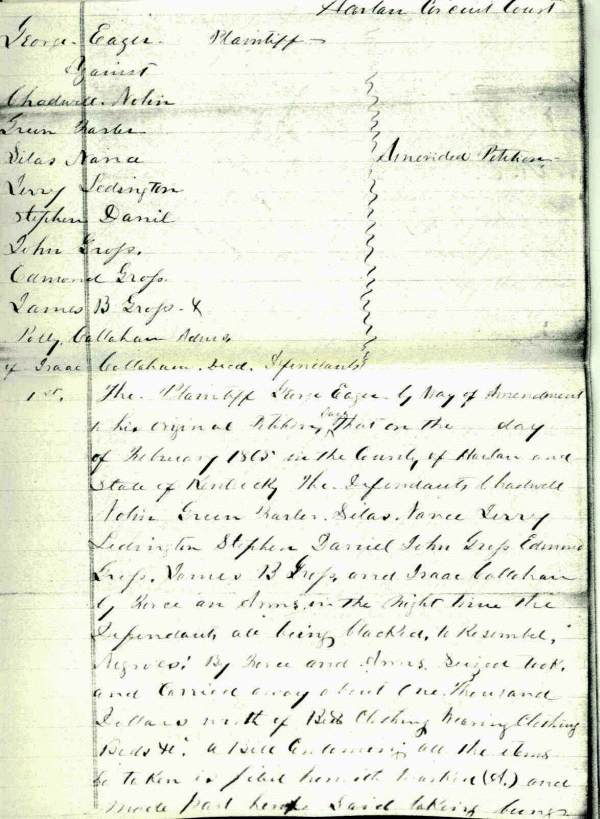 Harlan Circuit Court
George Eager Plaintiff
Against
Chadwell Nolin
Green
Silas Nance Amended Petition
Jerry Ledington
Stephen Daniel
John Gross.
Edmond Gross
James B Gross &
Polly Callahan Admrx
of Isaac Callahan Decd. Defendants
1st. The Plaintiff George Eager by way of Amendment
to his original Petition, Says that on the day
of February 1865 in the County of Harlan and
State of Kentucky The Defendants Chadwell
Nolin Green Silas Nance Jerry
Ledington Stephen Daniel John Gross Edmond
Gross. James B Gross, and Isaac Callahan
by Force an Arms, in the Night time the
Defendants all being blacked, to Resembel,
Negroes! By Force and Arms, Seized took,
and Carried away about One Thousand
Dollars worth of Bed Clothing Wearing Clothing
Beds &c. a Bill Containing all the items
so taken is filed herewith marked (A.) and
made part hereof Said taking being